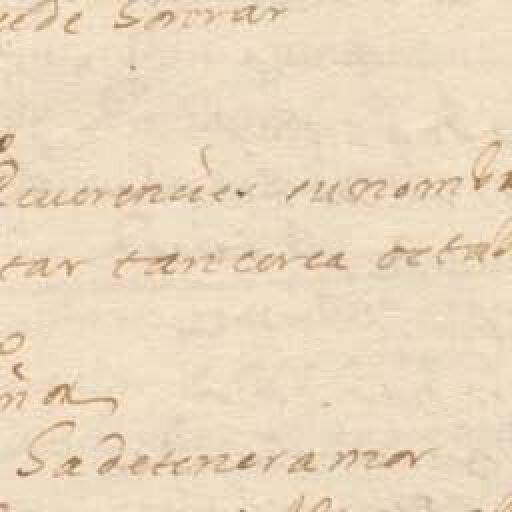 sonrar
o
Reuerencies su nombr
tar tan cerca octab
o
ña
Sa de tener amor